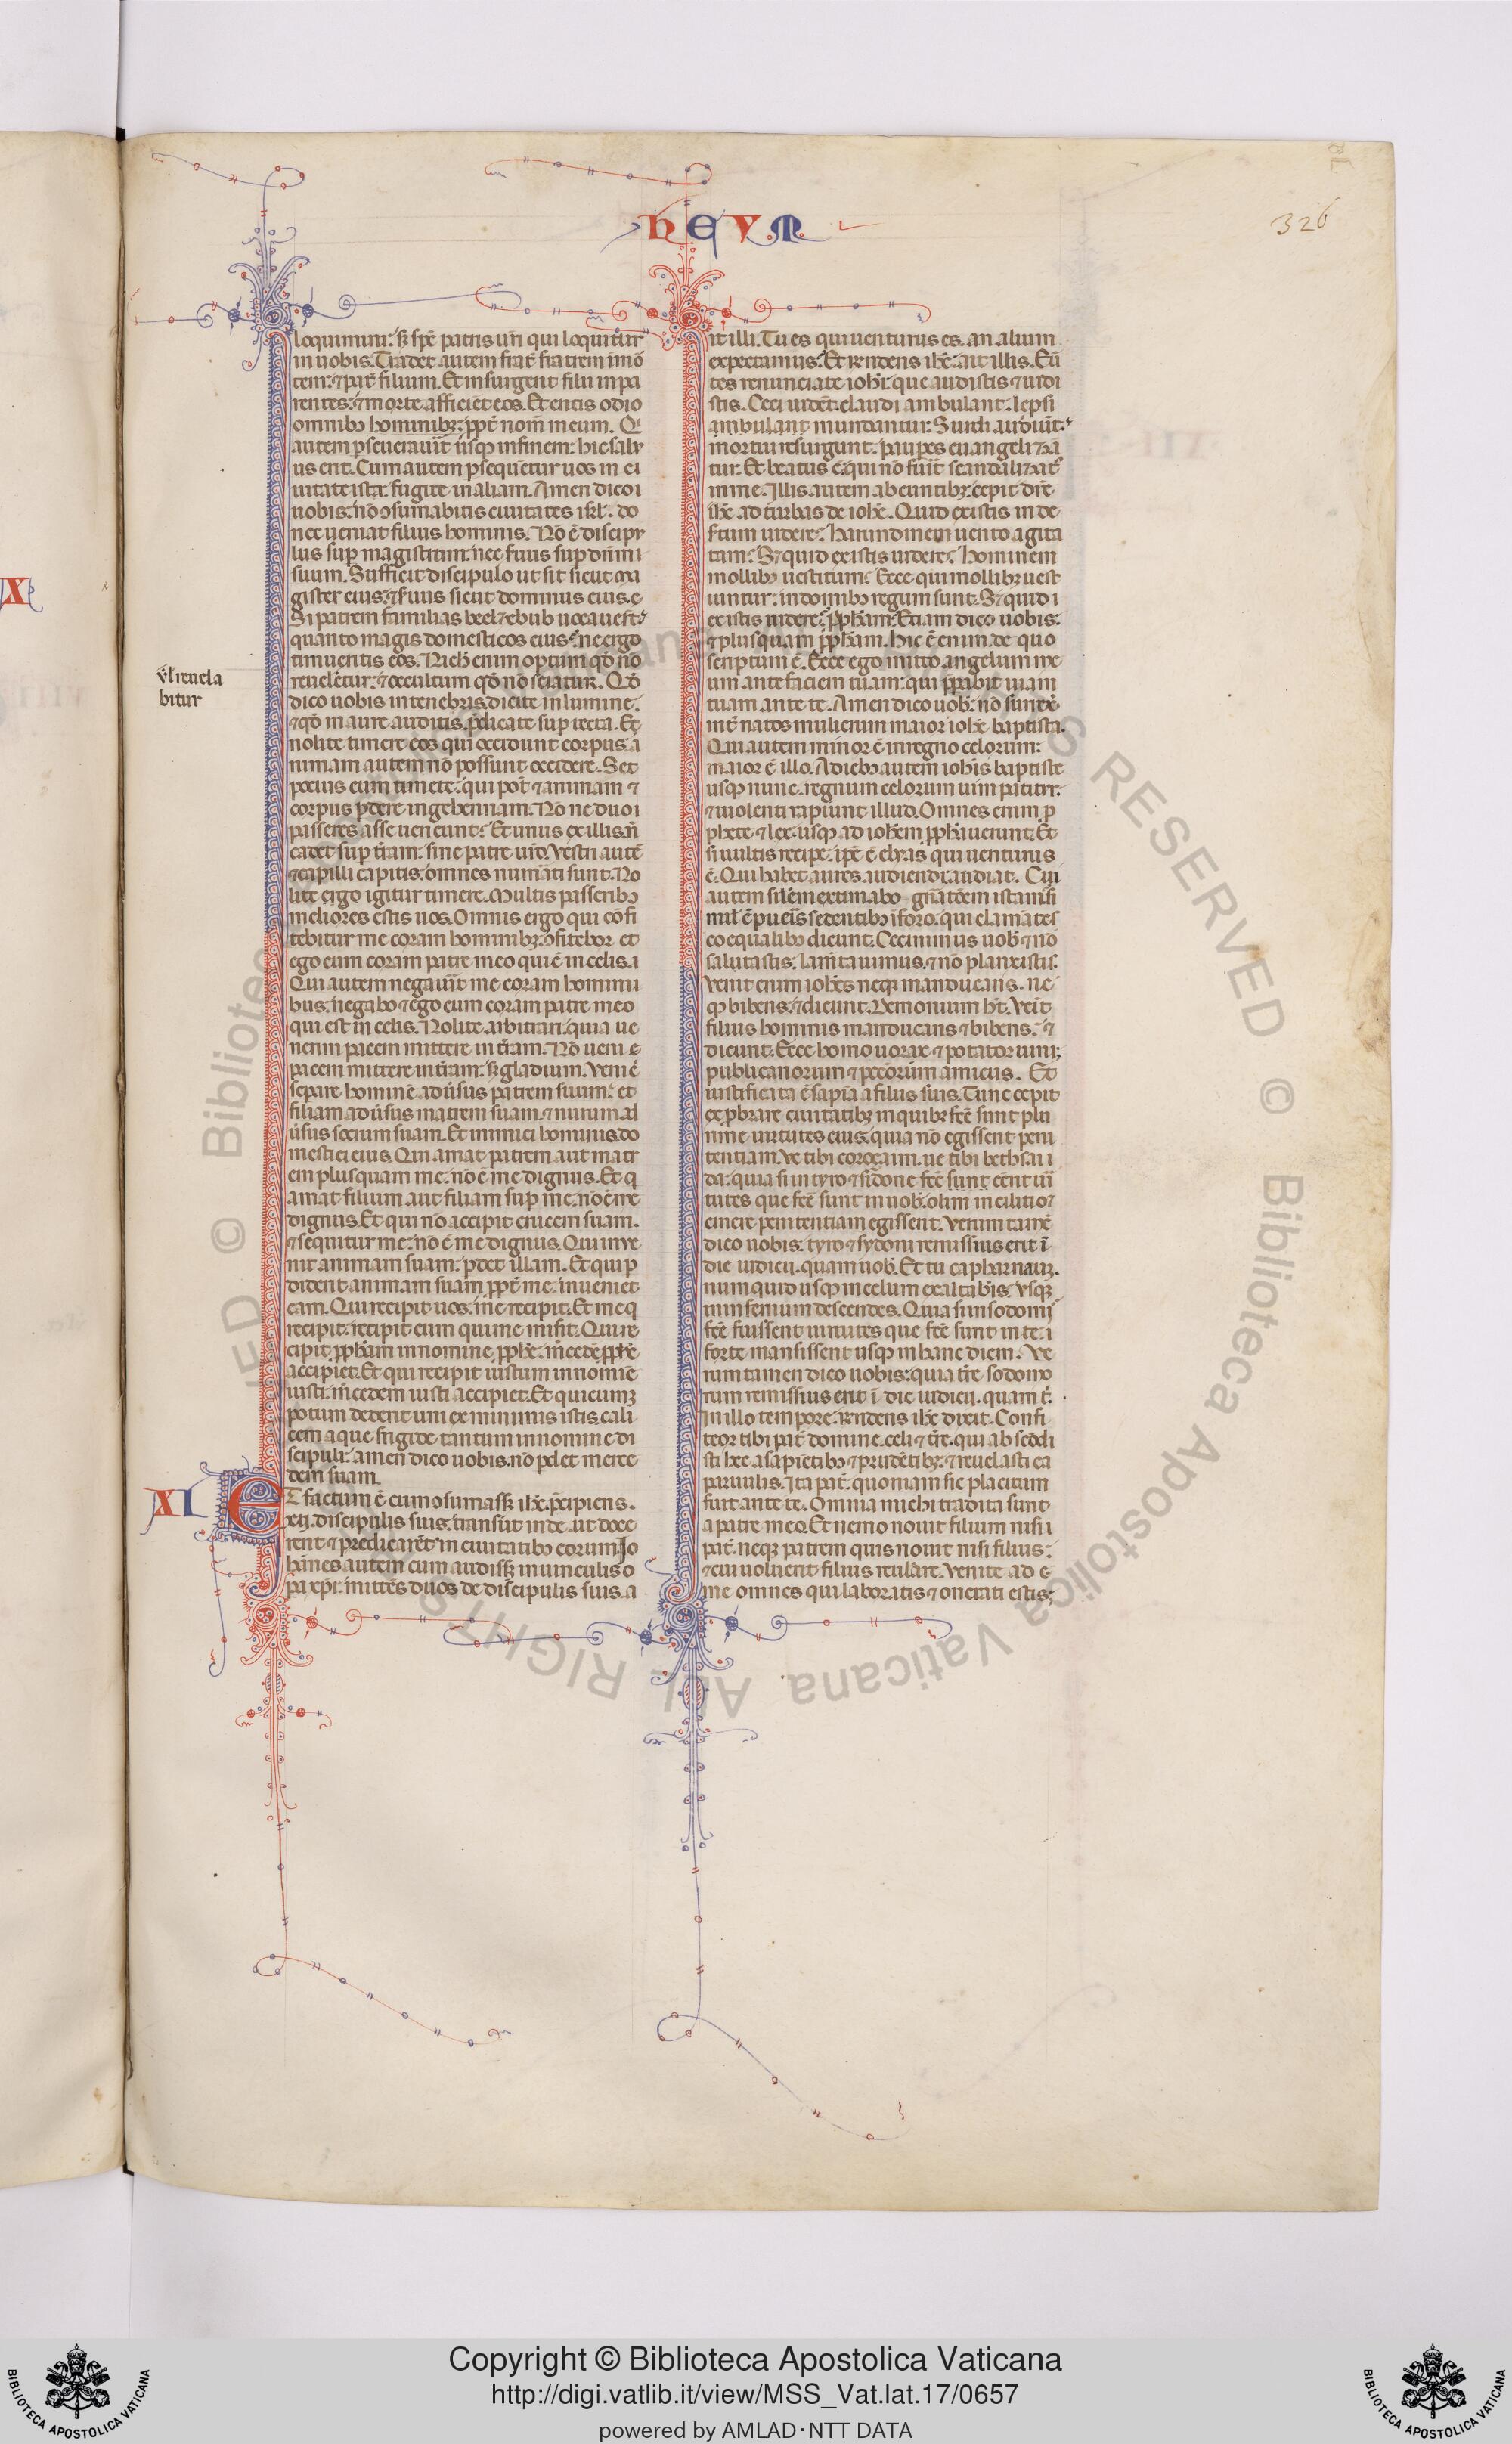 HEVM
326
loquimini: sꝫ sp̄c patris ur̄i qui loquitur
in uobis. Tradet autem frat̄ fratrem ī mo
tem: ⁊ pat̄ filium. Et insurgent filii in pa
rentes: ⁊ morte afficiēt eos. Et eritis odio
omnibꝫ hominibꝫ: ꝓpt̄ nom̄ meum. Qi
autem ꝑseuerauīt usqꝫ in finem: hic salu
us erit. Cum autem ꝑsequētur uos in ci
uitate ista: fugite in aliam. Amen dico i
uobis: nō ↄsumabitis ciuitates isrl̄. do
nec ueniat filius hominis. Nō ē discipi
lus suꝑ magistrum: nec s̓uus suꝑ dn̄m i
suum. Sufficit discipulo ut sit sicut ma
gister eius: ⁊ s̓uus sicut dominus eius. e
Si patrem familias beelzebub uocauer̄t:
quanto magis domesticos eius: ne ergo
timueritis eos. Nich̄ enim optum qd̄ nō
reueletur: ⁊ occultum qd̄ nō sciatur. Qd̄
ul̄ reuela
bitur
dico uobis in tenebris: dicite in lumine.
⁊ qd̄ in aure auditis. p̄dicate suꝑ tecta. Et
nolite timere eos qui occidunt corpus: a
nimam autem nō possunt occidere. Set
pocius eum timete: qui pot̄ ⁊ animam ⁊
corpus ꝑdere in gehennam. Nō ne duo i
passeres asse ueneunt: Et unus ex illis n̄
cadet suꝑ t̄ram: sine patre ur̄o. Vestri autē
⁊ capilli capitis: omnes num̄ati sunt. No
lite ergo igitur timere. Multis passeribꝫ
meliores estis uos. Omnis ergo qui cōfi
tebitur me coram hominibꝫ: ↄfitebor et
ego eum coram patre meo qui ē in celis. i
Qui autem negauīt me coram homini
bus: negabo ⁊ ego eum coram patre meo
qui est in celis. Nolite arbitrari: quia ue
nerim pacem mittere in t̄ram. Nō ueni e
pacem mittere in t̄ram: sꝫ gladium. Veni ē
seꝑare hominē aduersus patrem suum: et
filiam aduersus matrem suam. ⁊ nurum ad
uersus socrum suam. Et inimici hominis: do
mestici eius. Qui amat patrem aut matr
em plus quam me: nō ē me dignus. Et q
amat filium aut filiam suꝑ me: nō ē me
dignus. Et qui nō accipit crucem suam.
⁊ sequitur me: nō ē me dignus. Qui inue
nit animam suam: ꝑdet illam. Et qui ꝑ
diderit animam suam ꝓpt̄ me: inueniet
eam. Qui recipit uos: me recipit. Et me q
recipit: recipit eum qui me misit. Qui re
cipit ꝓph̄am in nomine ꝓph̄e: m̄cedē ꝓph̄e
accipiet. Et qui recipit iustum in nomīe
iusti: m̄cedem iusti accipiet. Et quicumqꝫ
potum dederit uni ex minimis istis cali
cem aque frigide tantum in nomine di
scipuli: amen dico uobis. nō ꝑdet merce
dem suam.
XI
ET factum ē cum ↄsumassꝫ ih̄c: p̄cipiens.
xij. discipulis suis: transiit inde. ut doce
rent ⁊ predicarēt in ciuitatibꝫ eorum. Jo
hannes autem cum audissꝫ in uinculis o
pa xp̄i: mittēs duos de discipulis suis. a
it illi. Tu es qui uenturus es. an alium
expectamus: Et r̄ndens ih̄c: ait illis. Eū
tes renunciate ioh̄i: que audistis ⁊ uidi
stis. Ceci uidēt: claudi ambulant: lepsi
ambulant mundantur. Surdi audiūt:
mortui resurgunt: pauꝑes euangelizā
tur. Et beatus ē: qui nō fuīt scandalizat̓
in me. Illis autem abeuntibꝫ: cepit dic̄e
ih̄c ad turbas de ioh̄e. Quid existis in de
sertum uidere: harundinem uento agita
tam: Sꝫ quid existis uidere: hominem
mollibꝫ uestitum: Ecce qui mollibꝫ uest
iuntur: in domibꝫ regum sunt. Sꝫ quid i
existis uidere: ꝓph̄am: Etiam dico uobis:
⁊ plus quam ꝓph̄am. Hic ē enim de quo
scriptum ē. Ecce ego mitto angelum me
um ante faciem tuam: qui p̄pabit uiam
tuam ante te. Amen dico uob̄: nō surrex̄
int̄ natos mulierum maior ioh̄e baptista.
Qui autem minor ē in regno celorum:
maior ē illo. A diebꝫ autem ioh̄is baptiste
usqꝫ nunc: regnum celorum uim patitur:
⁊ uiolenti rapiunt illud. Omnes enim ꝓ
phete ⁊ lex: usqꝫ ad ioh̄em ꝓph̄auerunt. Et
si uultis recipe: ip̄e ē elyas qui uenturus
ē. Qui habet aures audiendi: audiat. Cui
autem silēm extimabo gn̄atōem istam: si
mil̄ ē pueris sedentibꝫ ī foro. qui clamātes
coequalibꝫ dicunt. Cecinimus uob̄ ⁊ nō
saltastis: lam̄tauimus. ⁊ nō planxistis.
Venit enim ioh̄es neqꝫ manducans. ne
qꝫ bibens: ⁊ dicunt. Demonium h̄t. Ven̄t
filius hominis manducans ⁊ bibens: ⁊
dicunt. Ecce homo uorax ⁊ potator uini;
publicanorum ⁊ pecc̄orum amicus. Et
iustificata ē sapia a filiis suis. Tunc cepit
exꝓbrare ciuitatibꝫ in quibꝫ fc̄e sunt plu
rime uirtutes eius: quia nō egissent peni
tentiam. Ve tibi corozaim. ue tibi bethsai i
da: quia si in tyro ⁊ sidone fc̄e sunt eent uī
tutes que fc̄e sunt in uob̄: olim in cilitio ⁊
cinere penitentiam egissent. Verum tamē
dico uobis: tyro ⁊ sydoni remissius erit ī
die iudicii. quam uob̄. Et tu capharnaum.
numquid usqꝫ in celum exaltab̓is: usqꝫ
in infernum descendes. Quia si in sodomi
fc̄e fuissent uirtutes que fc̄e sunt in te: i
forte mansissent usqꝫ in hanc diem. Ve
rum tamen dico uobis: quia t̄re sodomo
rum remissius erit ī die iudicii. quam t̄.
In illo tempore: r̄ndens ih̄c dixit. Confi
teor tibi pat̄ domine. celi ⁊ t̄re. qui abscōdi
sti hec a sapiētibꝫ ⁊ prudētibꝫ: ⁊ reuelasti ea
paruulis. Ita pat̄: quoniam sic placitum
fuit ante te. Omnia michi tradita sunt
a patre meo. Et nemo nouit filium nisi i
pat̄: neqꝫ patrem quis nouit nisi filius:
⁊ cui uoluerit filius reuelare. Venite ad e
me omnes qui laboratis ⁊ onerati estis;
X
Copyright © Biblioteca Apostolica Vaticana
http://digi.vatlib.it/view/MSS_Vat.lat.17/0657
powered by AMLAD·NTT DATA
BIBLIOTECA APOSTOLICA VATICANA
BIBLIOTECA APOSTOLICA VATICANA